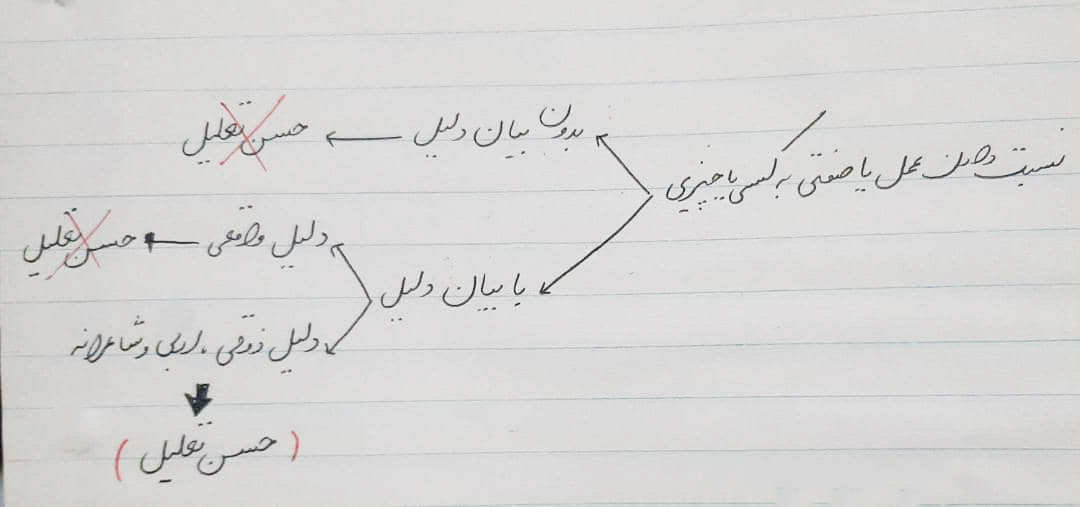 نسبت دادن عمل یا صفتی به کسی یا چیزی
بدون بیان دلیل ← حسن تعلیل
با بیان دلیل
دلیل واقعی ← حسن تعلیل
دلیل ذوقی، ادبی و شاعرانه
(حسن تعلیل)